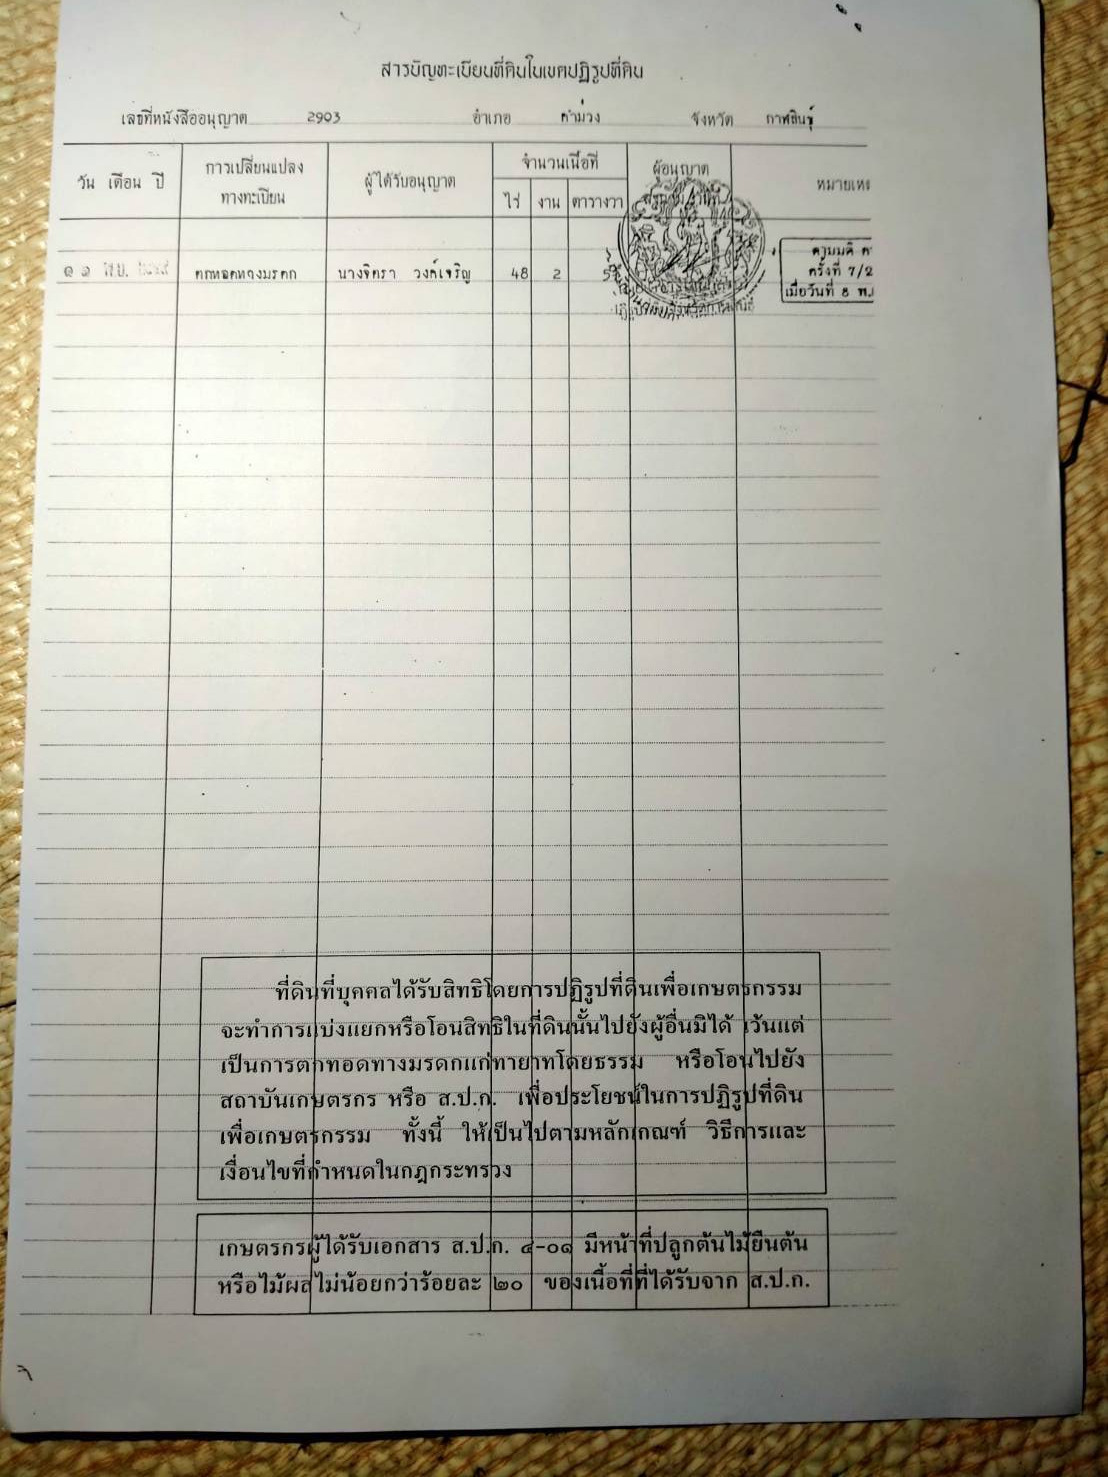 สารบัญทะเบียนที่ดินในเขตปฏิรูปที่ดิน
เลขที่หนังสืออนุญาต 2903 อำเภอ คำม่วง จังหวัด กาฬสินธุ์
วัน เดือน ปี การเปลี่ยนแปลงทางทะเบียน ผู้ได้รับอนุญาต จำนวนเนื้อที่ ผู้อนุญาต
ไร่ งาน ตารางวา
๑๑ ตกทอดทางมรดก นางจิตรา วงค์เจริญ 48 2
ตามมติ
ครั้งที่ 7/2
เมื่อวันที่ 8 พ.
ที่ดินที่บุคคลได้รับสิทธิโดยการปฏิรูปที่ดินเพื่อเกษตรกรรม
จะทำการแบ่งแยกหรือโอนสิทธิในที่ดินนั้นไปยังผู้อื่นมิได้ เว้นแต่
เป็นการตกทอดทางมรดกแก่ทายาทโดยธรรม หรือโอนไปยัง
สถาบันเกษตรกร หรือ ส.ป.ก. เพื่อประโยชน์ในการปฏิรูปที่ดิน
เพื่อเกษตรกรรม ทั้งนี้ ให้เป็นไปตามหลักเกณฑ์ วิธีการและ
เงื่อนไขที่กำหนดในกฎกระทรวง
เกษตรกรผู้ได้รับเอกสาร ส.ป.ก. ๔-๐๑ มีหน้าที่ปลูกต้นไม้ยืนต้น
หรือไม้ผลไม่น้อยกว่าร้อยละ ๒๐ ของเนื้อที่ที่ได้รับจาก ส.ป.ก.